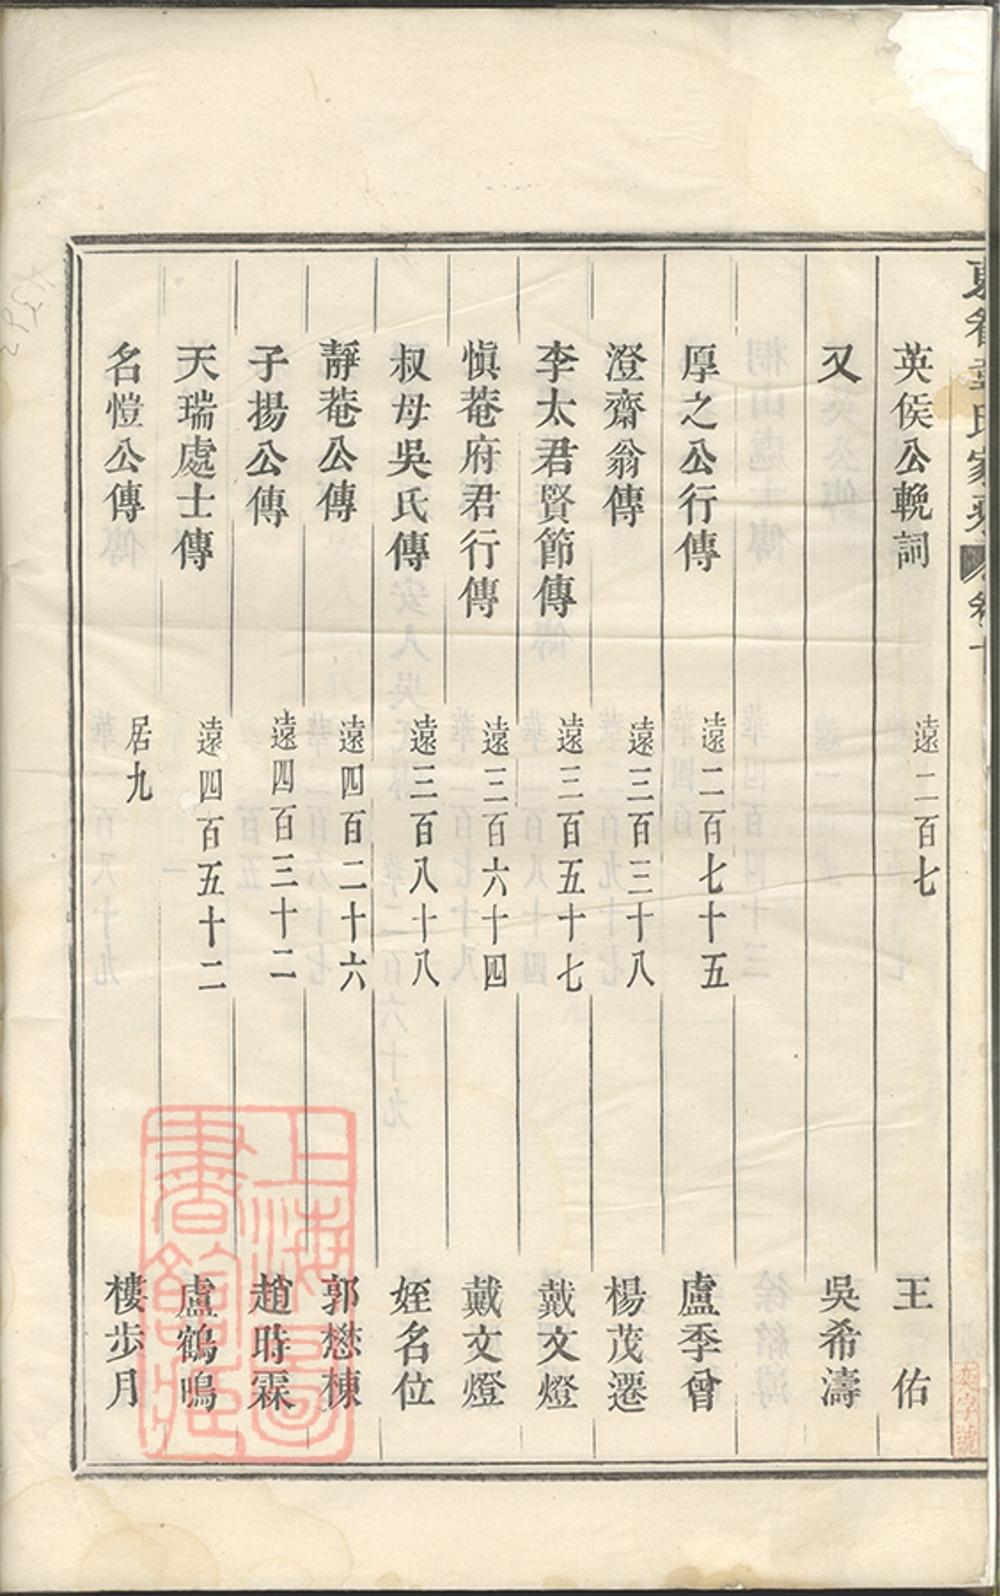 英侯公輓詞 遠二百七 王佑
又 吳希濤
厚之公行傳 遠二百七十五 盧季曾
澄齋翁傳 遠三百三十八 楊茂遷
李太君賢節傳 遠三百五十七 戴文燈
愼菴府君行傳 遠三百六十四 戴文燈
叔母吳氏傳 遠三百八十八 姪名位
靜菴公傳 遠四百二十六 郭懋棟
子揚公傳 遠四百三十二 趙時霖
天瑞處士傳 遠四百五十二 盧鶴鳴
名愷公傳 居九 樓步月
上海圖書館藏